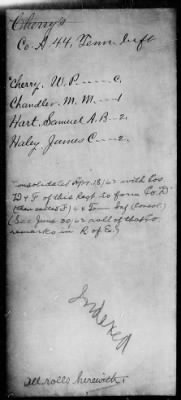 Cherry's
Co. A 44, Tenn. Inft
Cherry, W. P. C.
Chandler, M. M. 1
Hart, Samuel A. B. 2.
Haley James C. 2.
Consolidated Apr. 18/62 with Cos
D & F of this Regt to form Co. "D"
(See June 30/62 roll of that Co
remarks in R of E.)
Indexed
All rolls herewith.